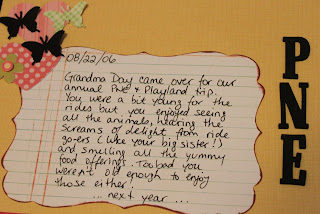 08/22/06
Grandma Day came over for our
annual PNE & Playland trip.
You were a bit young for the
rides but you enjoyed seeing
all the animals, hearing the
screams of delight from ride
go-ers (like your big sister!)
and smelling all the yummy
food offerings. Too bad you
weren't old enough to enjoy
those either.
... next year ...
PNE